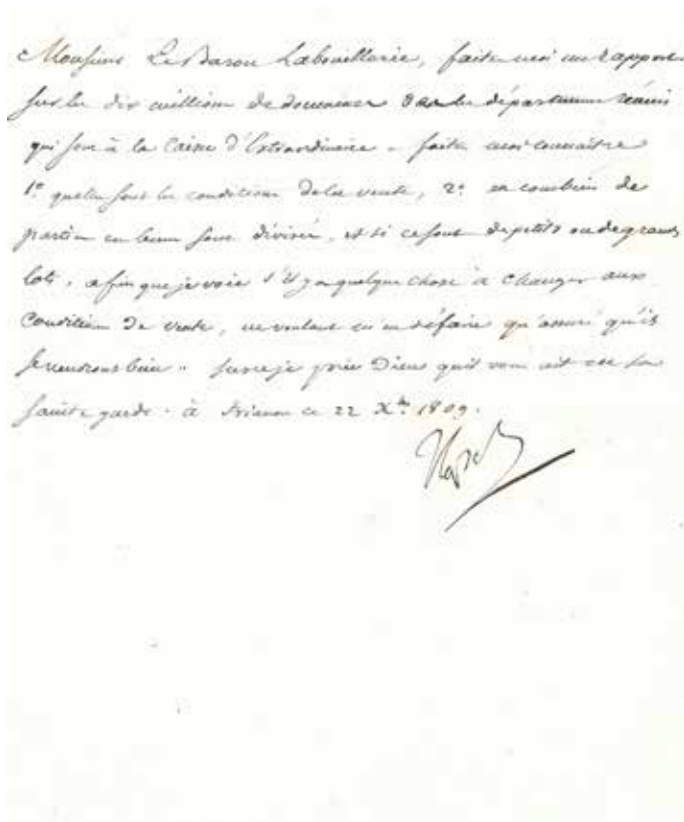 Monsieur Le Baron Labouillerie, faites moi un rapport
sur les dix millions de domaines des départemens réunis
qui sont à la Caisse d'Extraordinaire. faites moi connaître
1.º quelles sont les conditions de la vente, 2.º en combien de
parties ces biens sont divisés, et si ce sont de petits ou de grands
lots, afin que je voie s'il y a quelque chose à changer aux
conditions de vente, ne voulant m'en défaire qu'assuré qu'ils
se vendront bien. Sur ce je prie Dieu qu'il vous ait en sa
sainte garde. à Trianon ce 22 Xbre 1809.
Nap